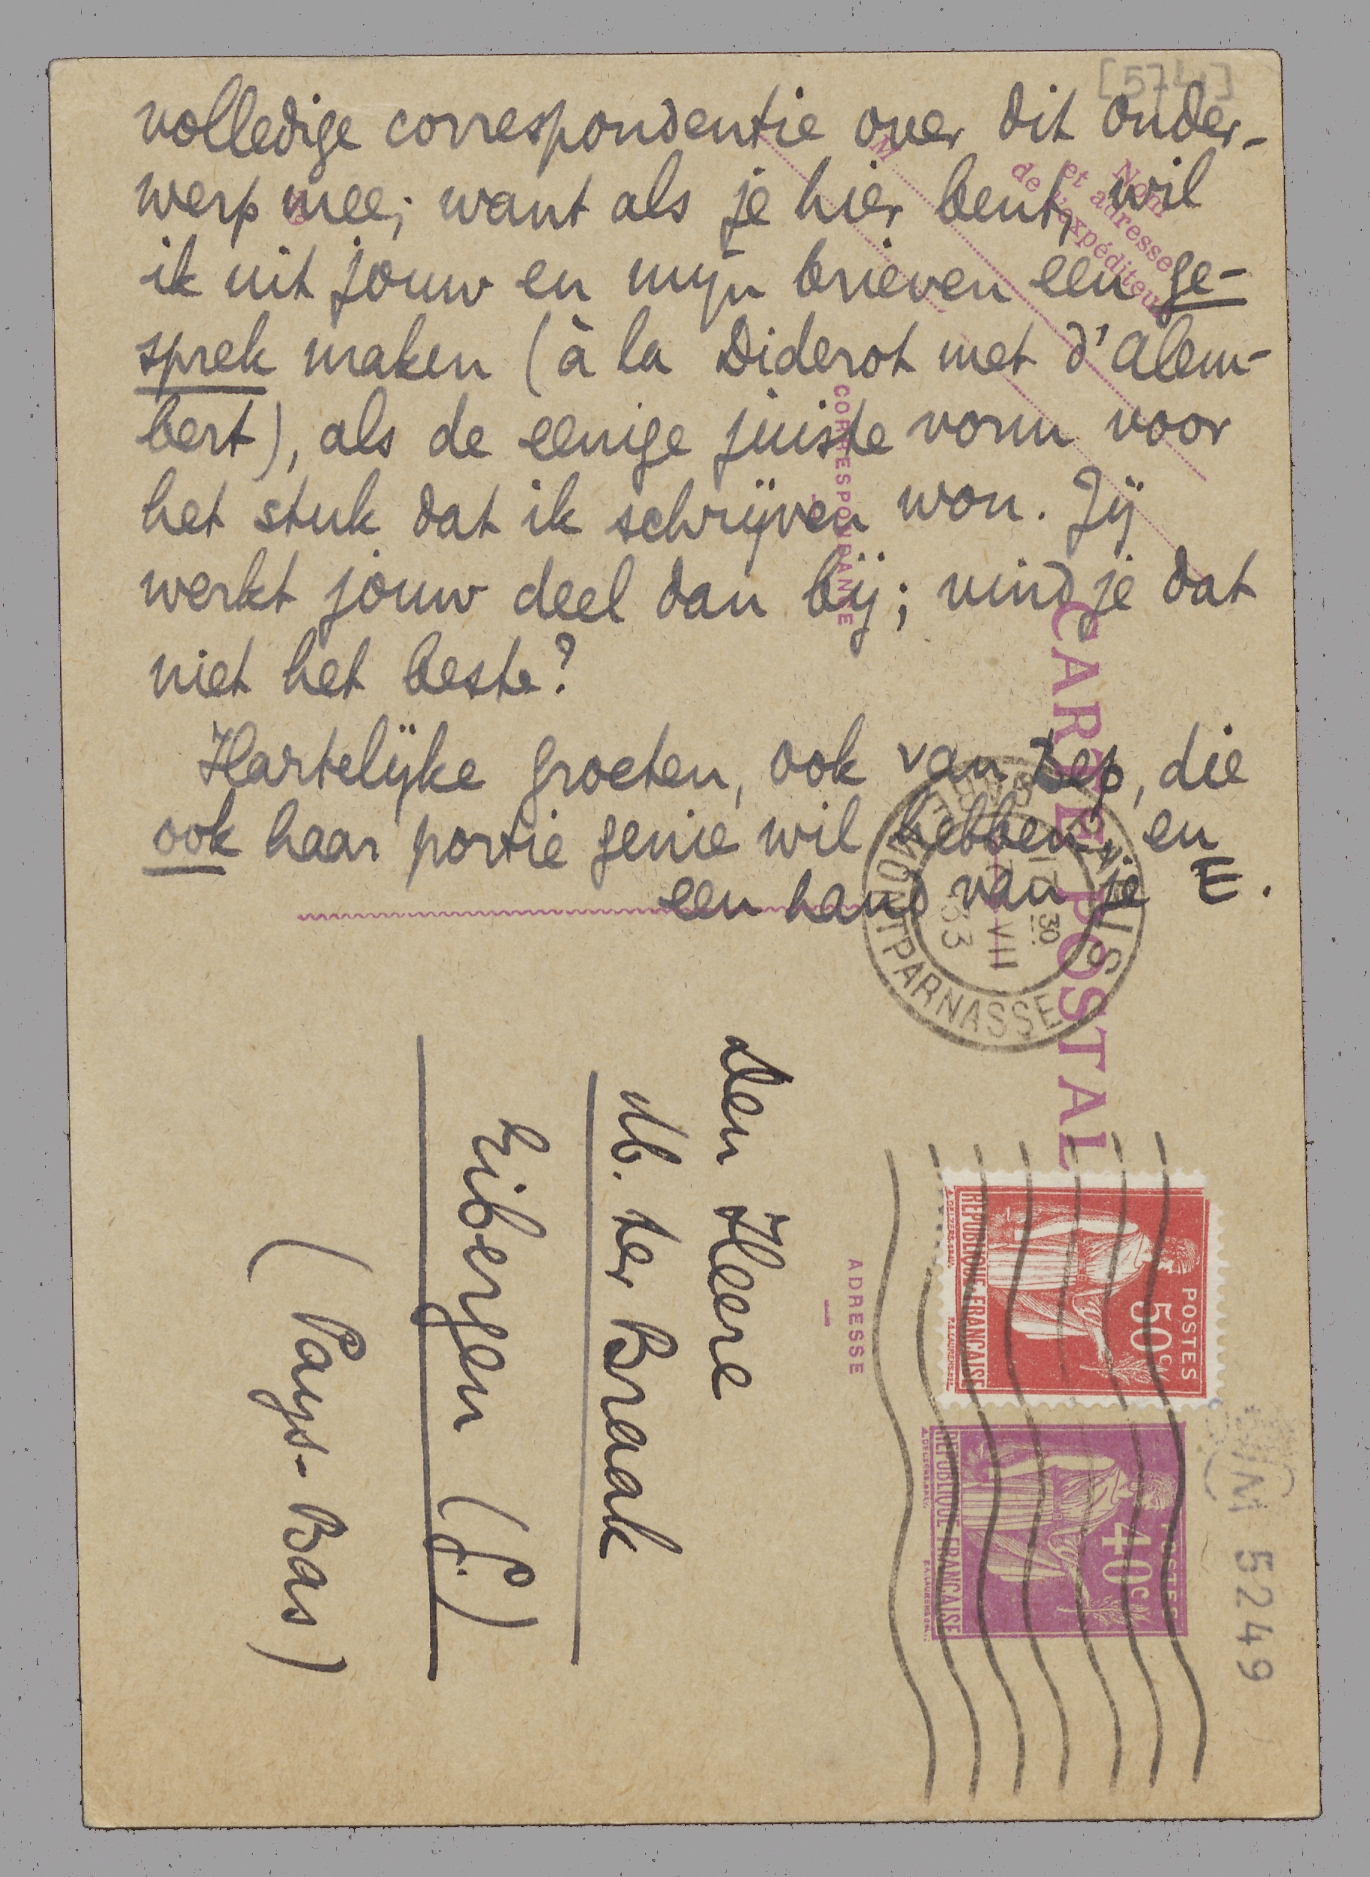 [574]
volledige correspondentie over dit onder-
werp mee; want als je hier bent, wil
ik uit jouw en mijn brieven een ge-
sprek maken (à la Diderot met d'Alem-
bert), als de eenige juiste vorm voor
het stuk dat ik schrijven wou. Jij
werkt jouw deel dan bij; vind je dat
niet het beste?
Hartelijke groeten, ook van Bep, die
ook haar portie genie wil hebben, en
een hand van je E.
Nom
et adresse
de l'expéditeur
M
CORRESPONDANCE
CARTE POSTALE
MONTPARNASSE
VII
33
ADRESSE
Den Heere
M. ter Braak
Eibergen (G.)
(Pays-Bas)
POSTES
50c
REPUBLIQUE FRANÇAISE
POSTES
40c
REPUBLIQUE FRANÇAISE
M 5249